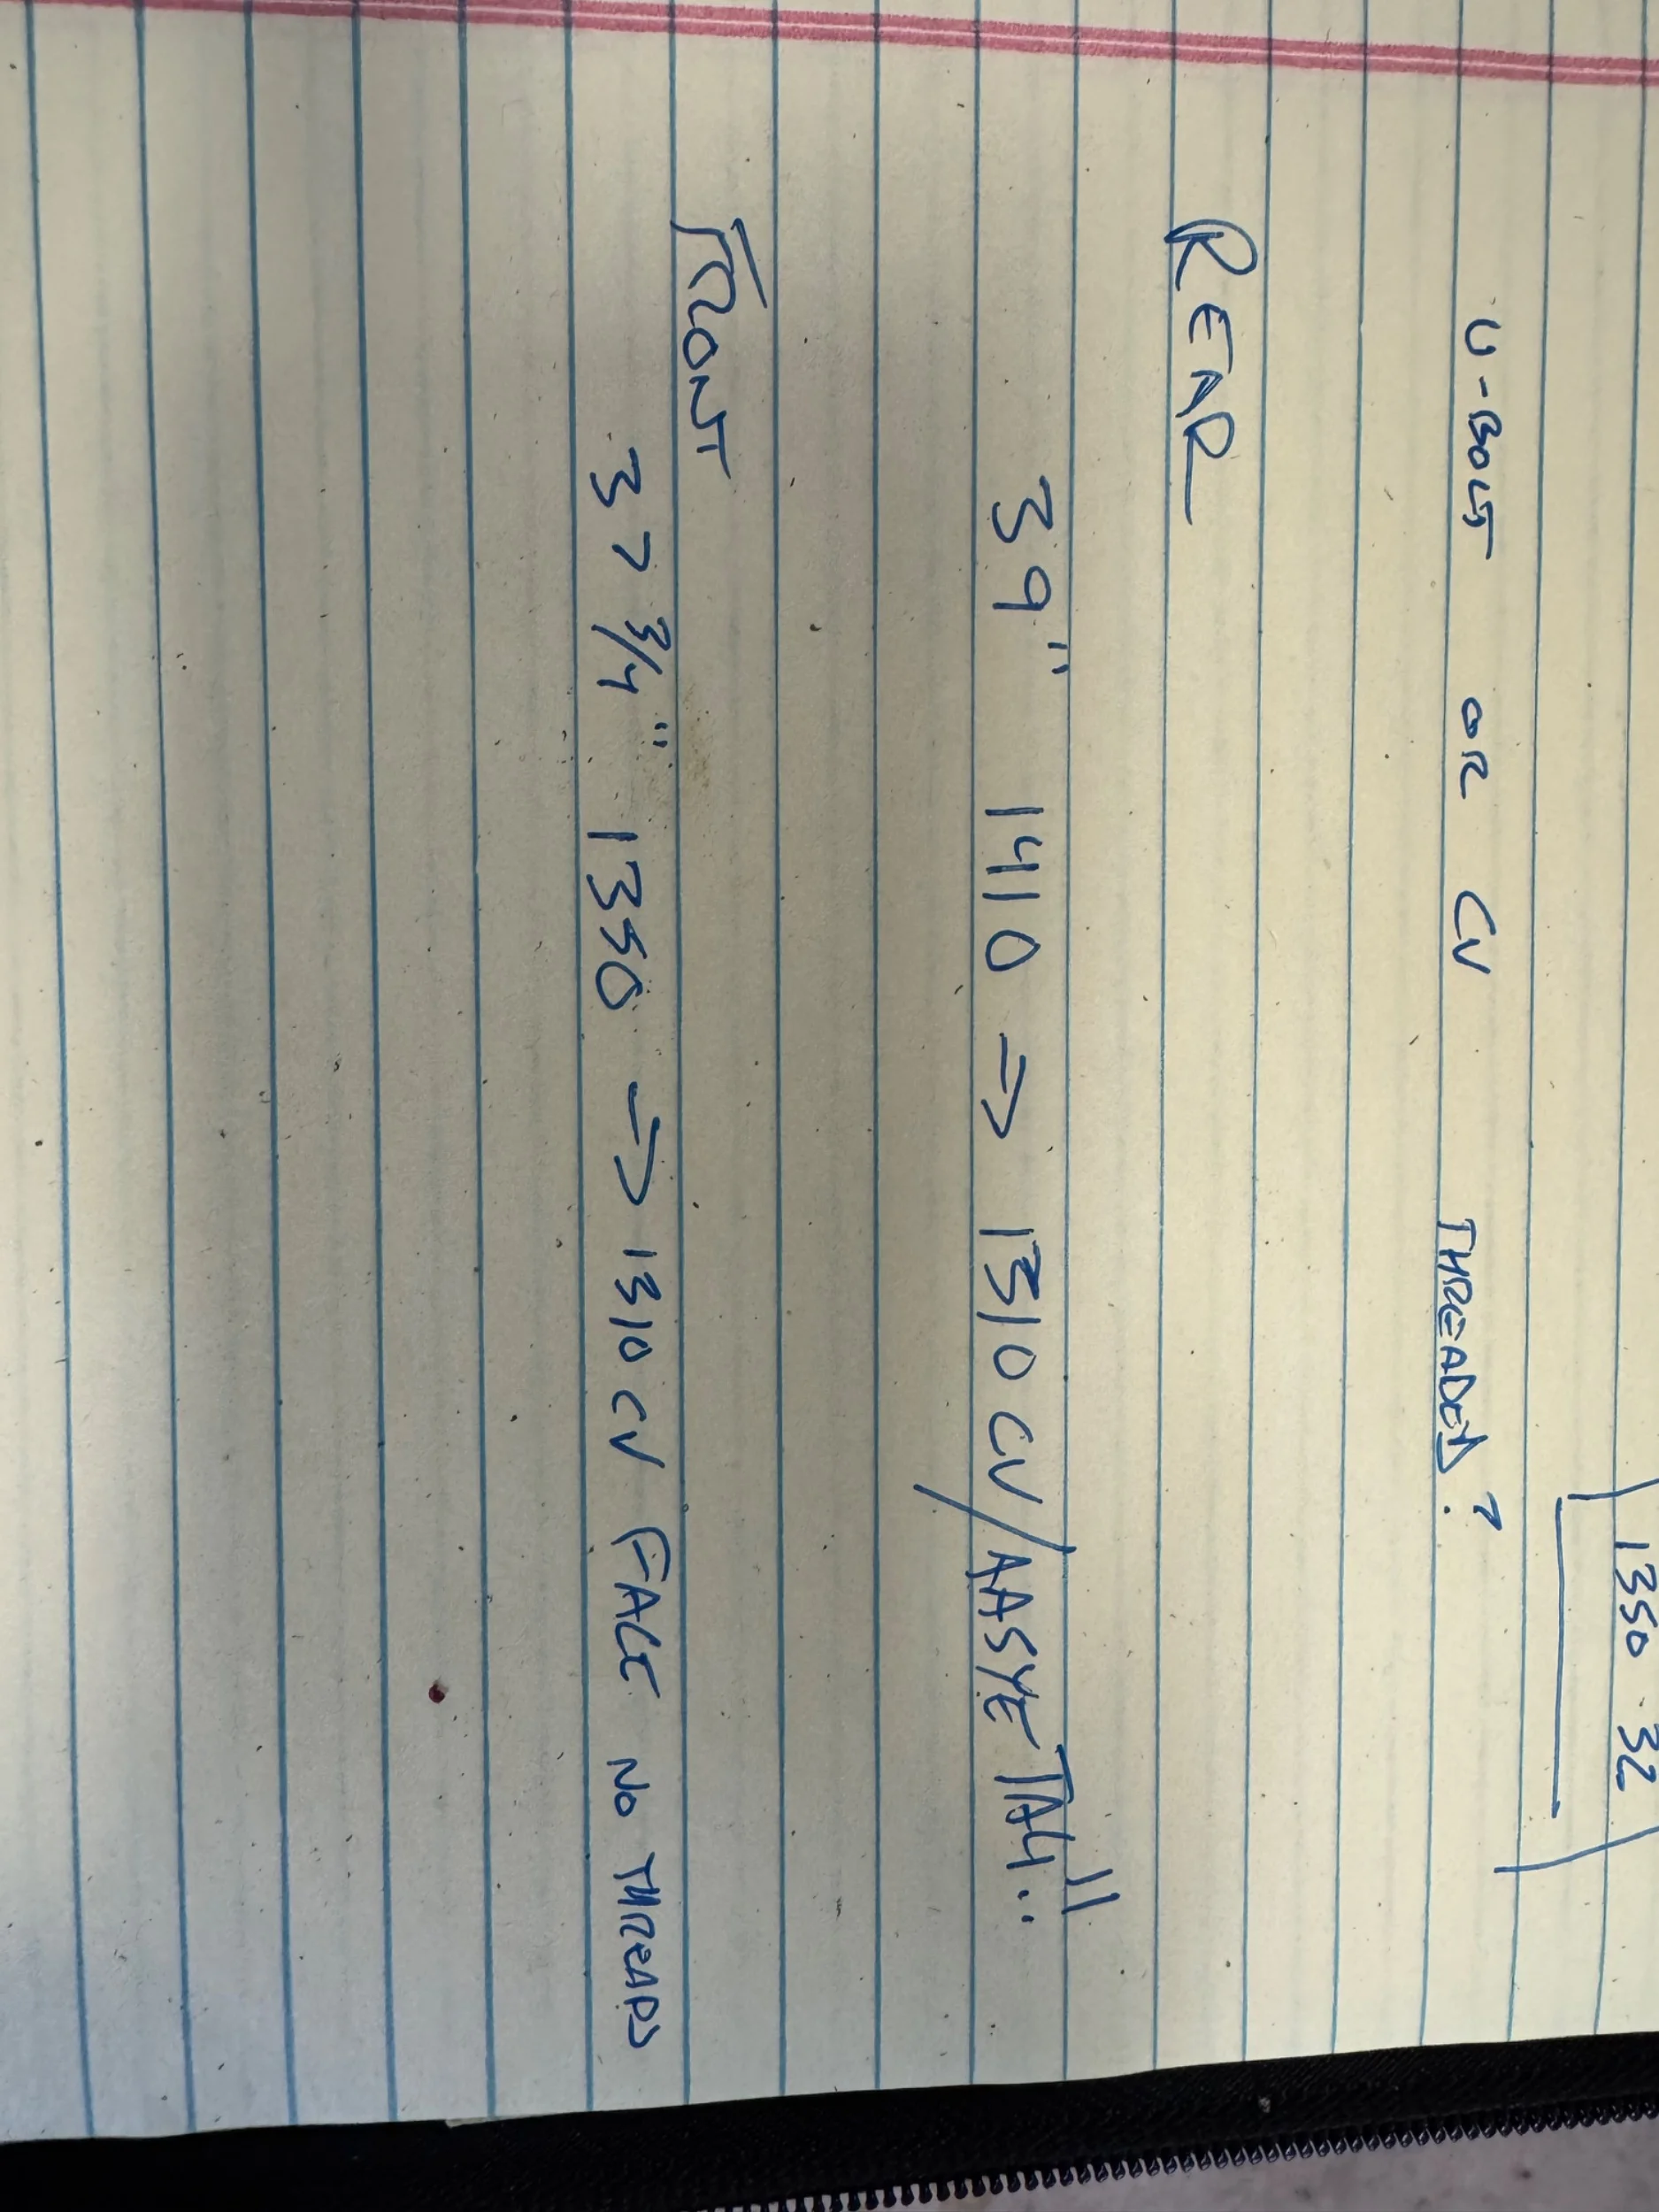 1350 32
U-BOLT OR CV THREADED?
REAR
39" 1410 => 1310 CV/
FRONT
37 3/4" 1350 => 1310 CV FACE NO THREADS